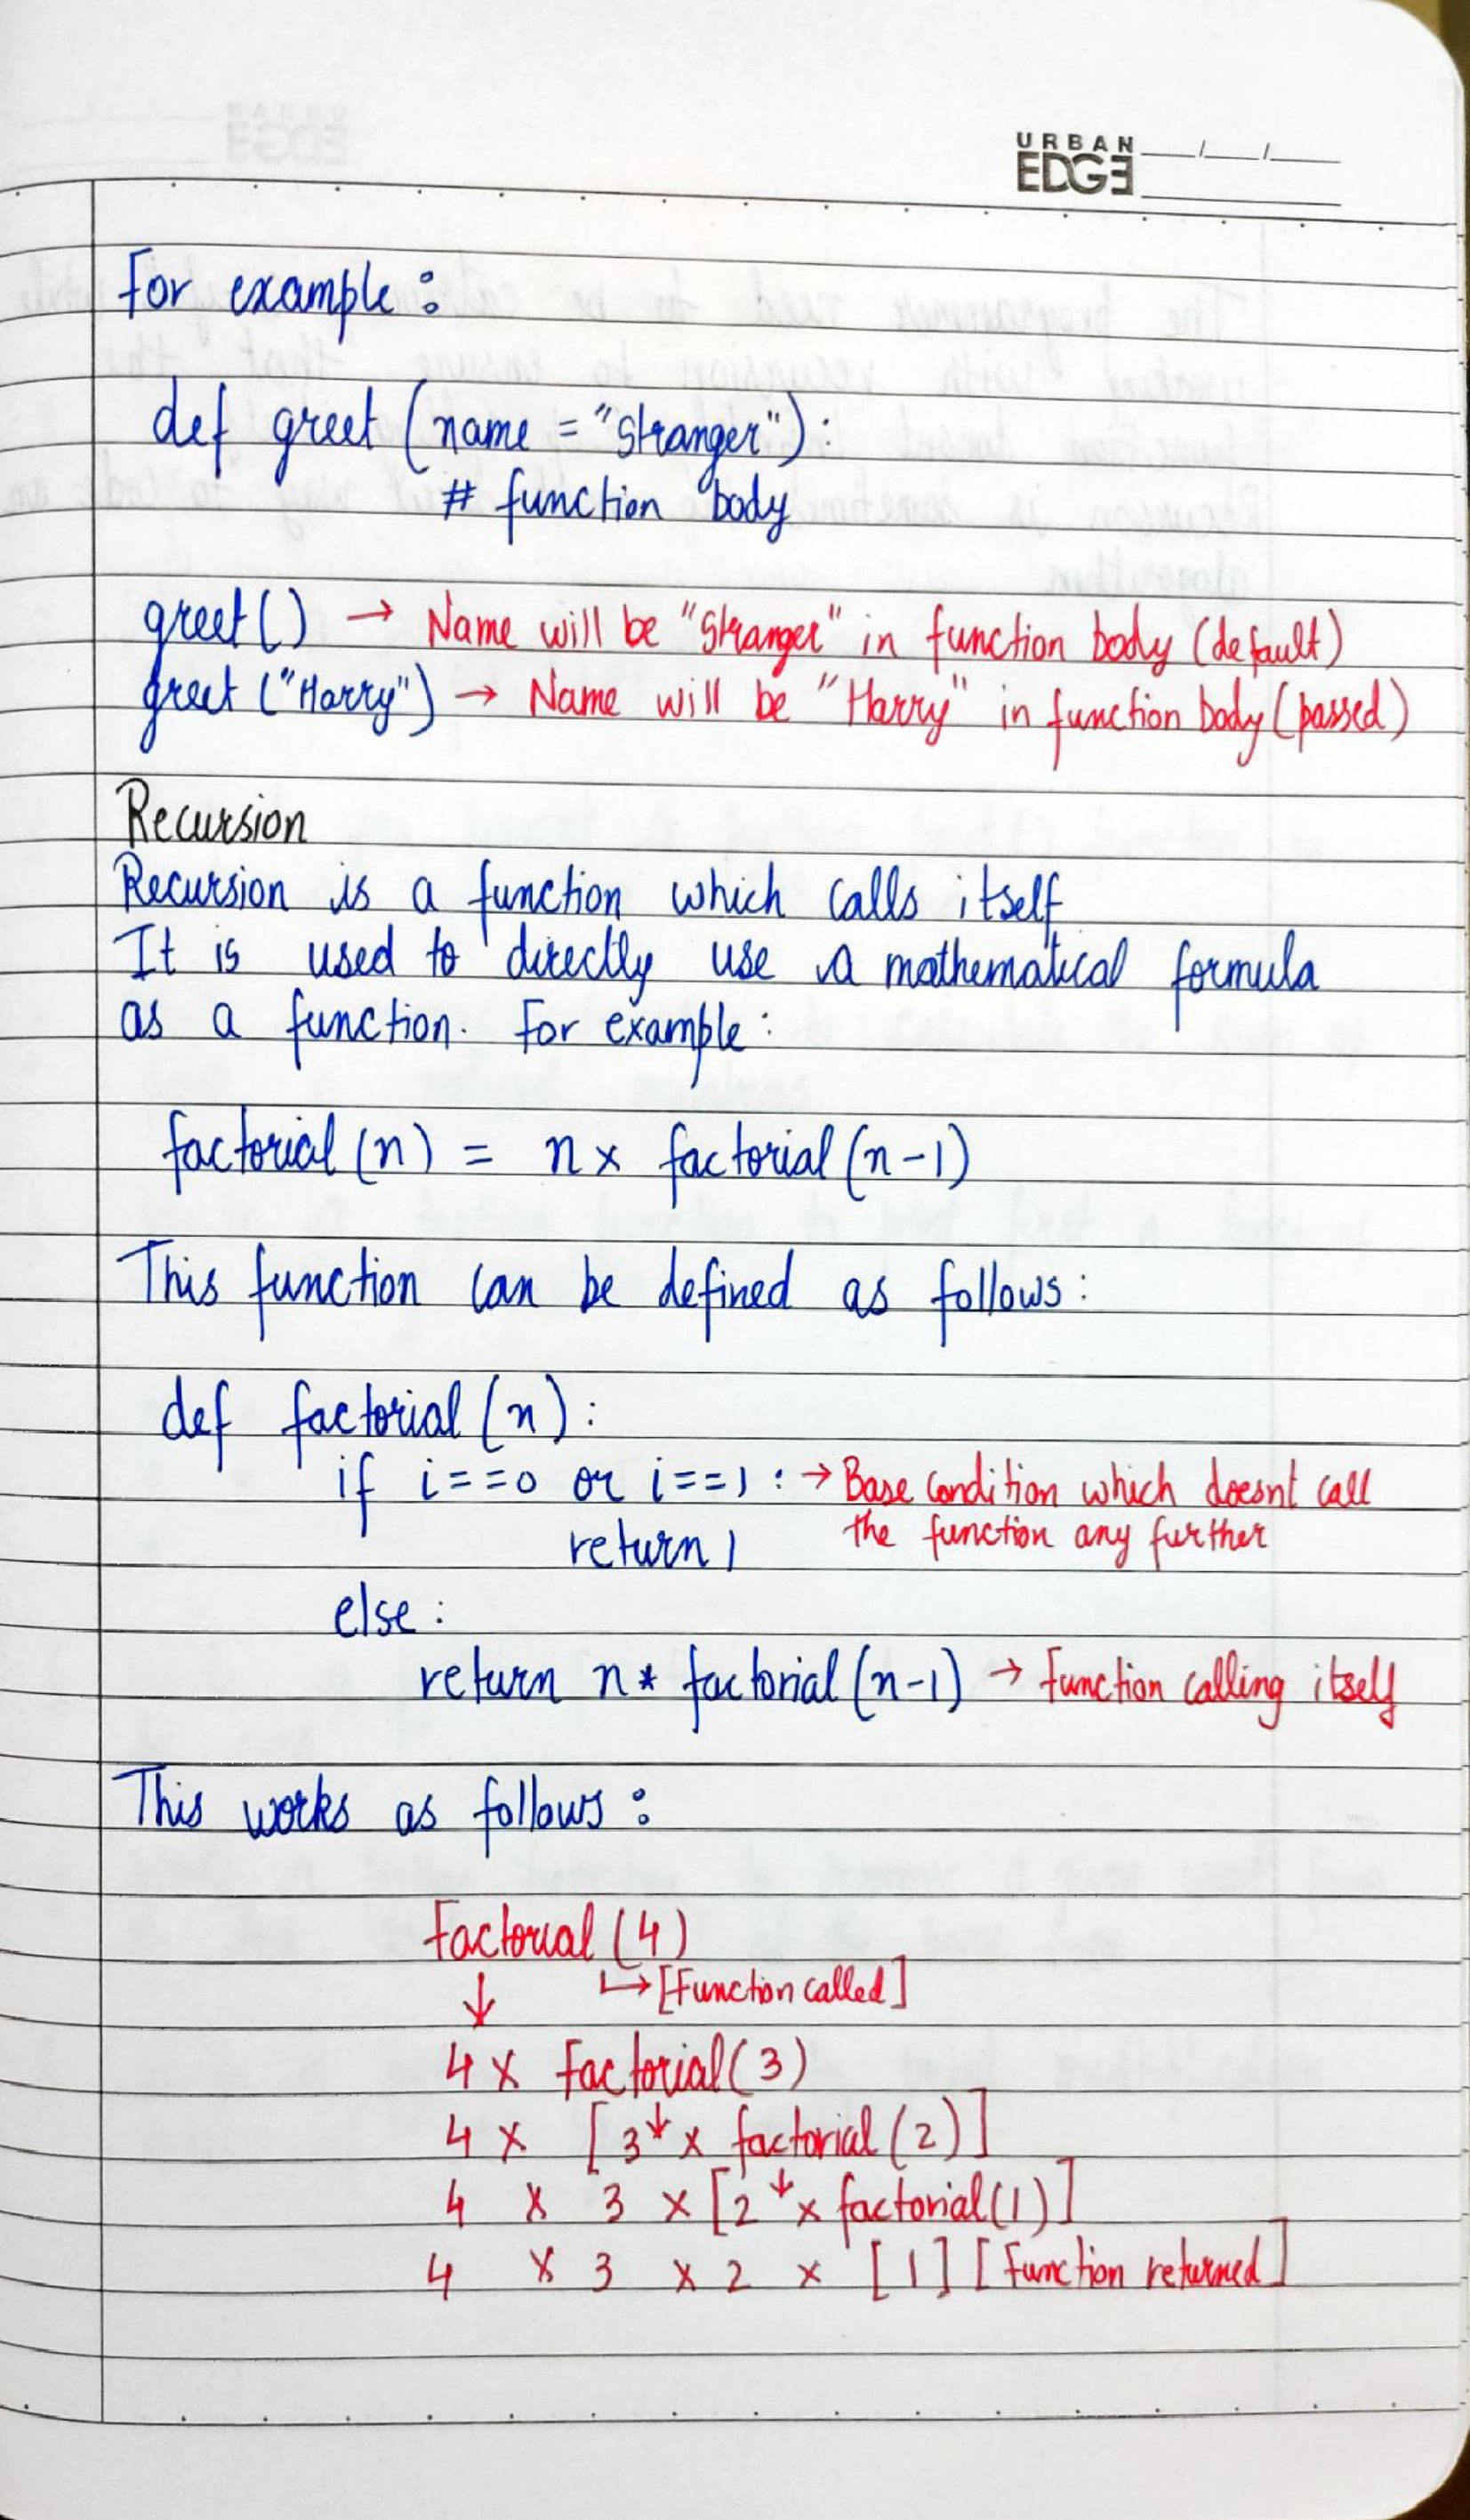 URBAN
EDGE
For example:
def greet (name = "Stranger"):
# function body
greet() → Name will be "Stranger" in function body (default)
greet ("Harry") → Name will be "Harry" in function body (passed)
Recursion
Recursion is a function which calls itself
It is used to directly use a mathematical formula
as a function. For example:
factorial (n) = n x factorial (n-1)
This function can be defined as follows:
def factorial (n):
if i==0 or i==1 : → Base condition which doesnt call
the function any further
return 1
else:
return n* factorial (n-1) → Function calling itself
This works as follows:
Factorial (4)
↓ ↳ [Function called]
4 x Factorial (3)
4 x [3 ↓ x factorial (2)]
4 x 3 x [2 ↓ x factorial (1)]
4 x 3 x 2 x [1] [Function returned]